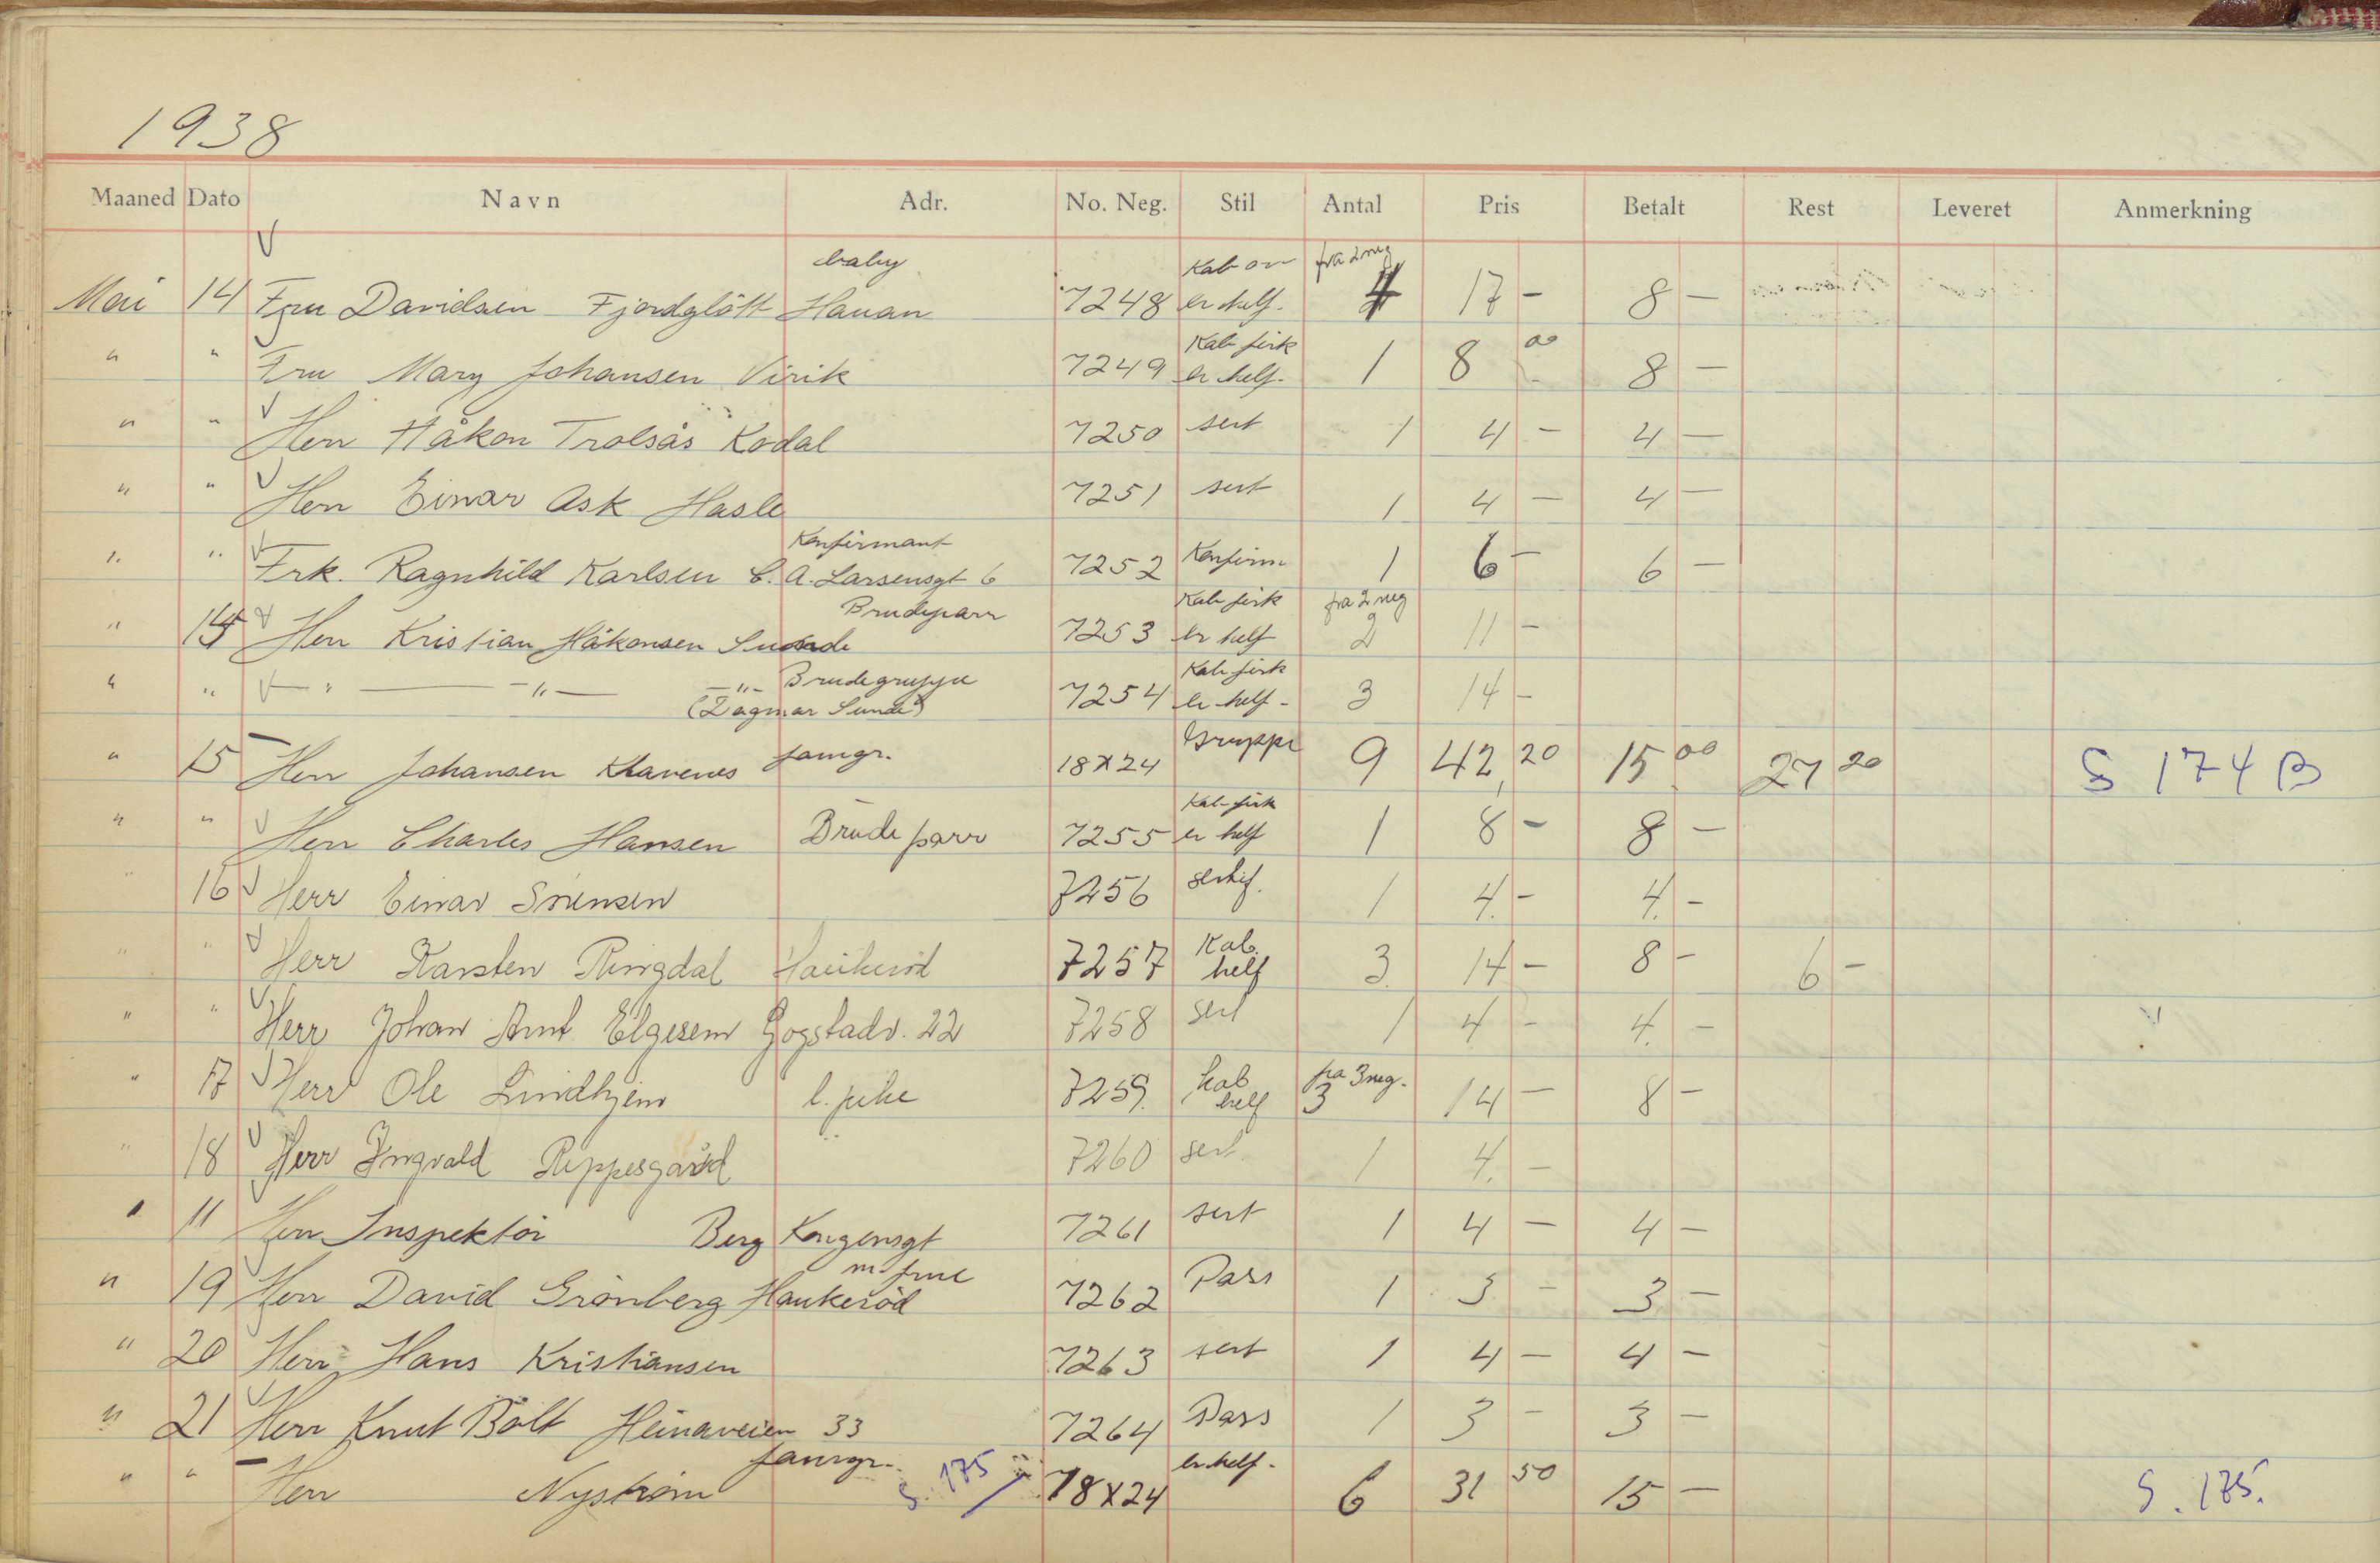 1938
Maaned Dato Navn Adr. No. Neg. Stil Antal Pris Betalt Rest Leveret Anmerkning
baby Kab fra 2 neg
Mai 14 Fru Davidsen Fjordglött Hauan 7248 er helf. 4 17 - 8 -
Kab firk
" " Fru Mary Johansen Virik 7249 er helf. 1 8 00 8 -
" " Herr Håkon Trolsås Kodal 7250 sert 1 4 - 4 -
" " Herr Einar Ask Hasle 7251 sert 1 4 - 4 -
Konfirmant
" " Frk. Ragnhild Karlsen C. A. Larsensgt 6 7252 Konfirm 1 6 - 6 -
Brudeparr Kab firk fra 2 neg
" 14 Herr Kristian Håkonsen Sunde 7253 er helf 2 11 -
Brudegruppe Kab firk
" " " — " — — " — (Dagmar Sunde) 7254 er helf - 3 14 -
" 15 Herr Johansen Klavenes famgr. 18x24 Gruppe 9 42,20 15 00 27 20 S 174 B
Kab firk
" " Herr Charles Hansen Brudeparr 7255 er helf 1 8 - 8 -
" 16 Herr Einar Sörensen 7256 sertif. 1 4. - 4. -
" " Herr Karsten Ringdal Haukeröd 7257 Kab. helf 3 14 - 8 - 6 -
" " Herr Johan Arnt Elgesem Gogstadv. 22 7258 sert 1 4 - 4. -
" 17 Herr Ole Lindhjem l. pike 7259. kab helf fra 3 neg. 3 14 - 8 -
" 18 Herr Ingvald Reppesgård 7260 sert. 1 4. -
" 11 Herr Inspektör Berg Kongensgt 7261 sert 1 4 - 4 -
m frue
" 19 Herr David Grönberg Haukeröd 7262 Pass 1 3 - 3 -
" 20 Herr Hans Kristiansen 7263 sert 1 4 - 4 -
" 21 Herr Knut Bölt Heinaveien 33 7264 Pass 1 3 - 3 -
famgr. S. 175 er helf.
" " Herr Nyström 18x24 6 31 50 15 - S. 175.